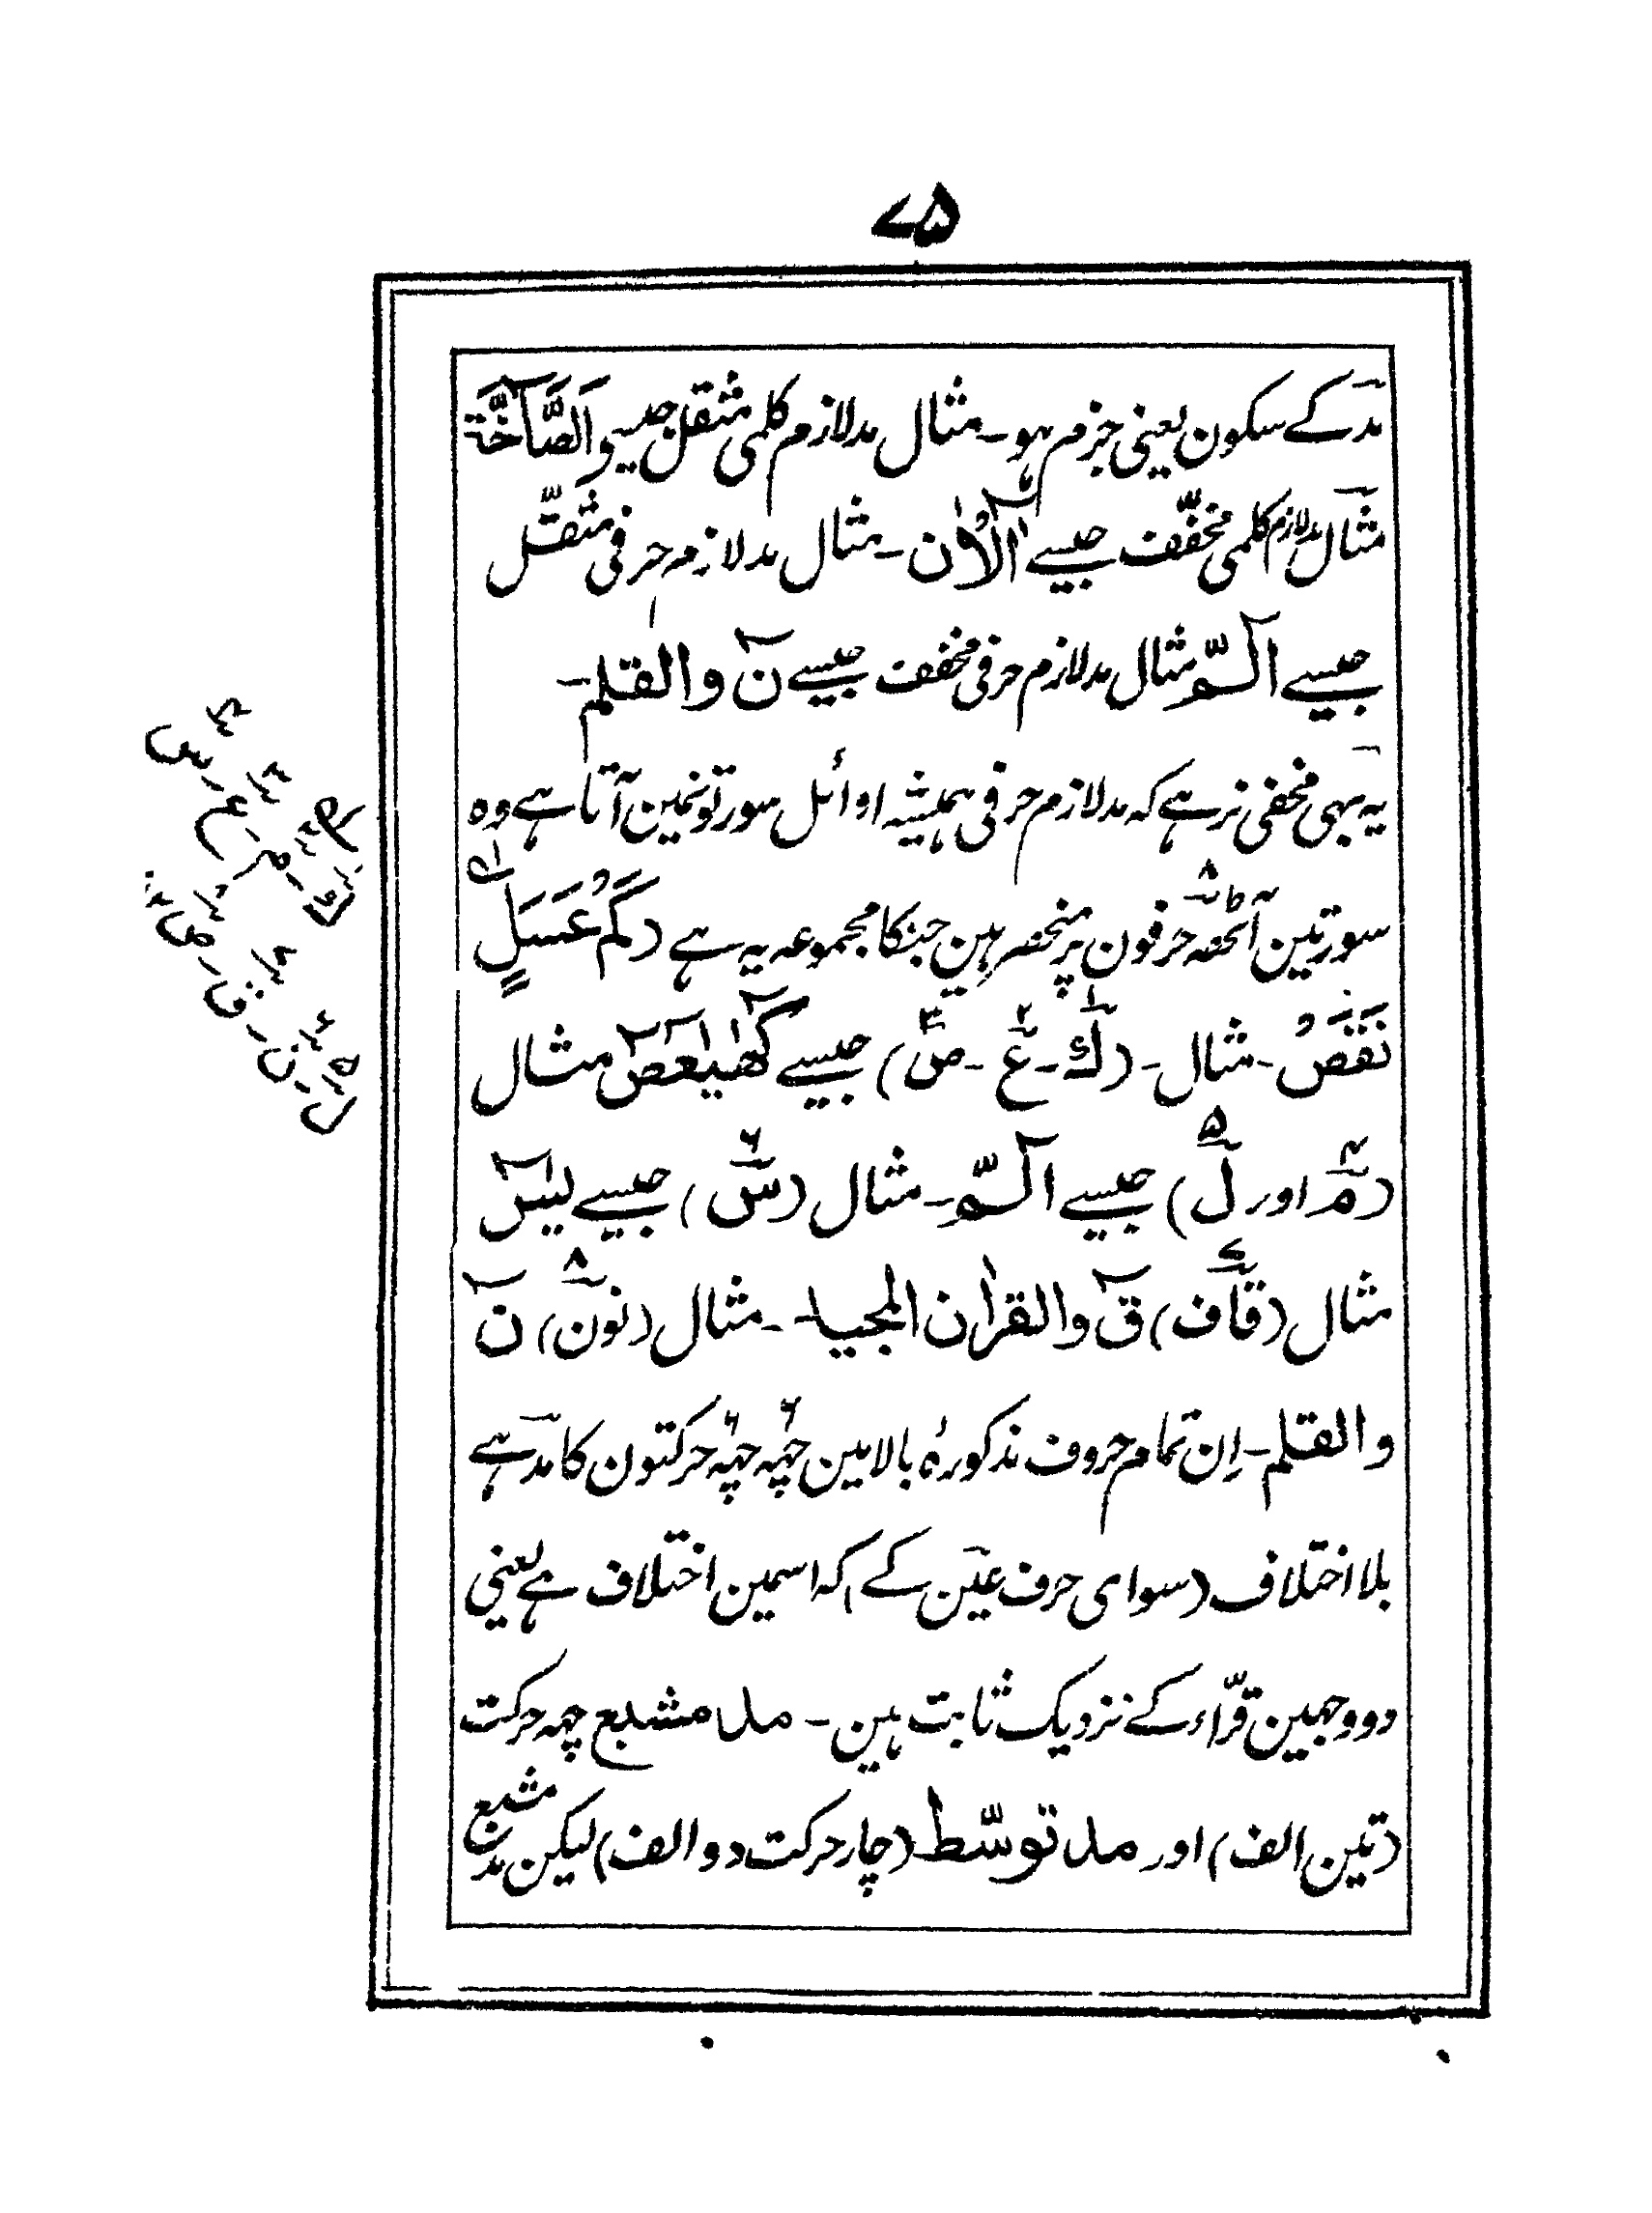 ۷۵
مدّ کے سکون یعنی جزم ہو۔ مثال مدلازم کلمی مثقل جیسے وَالصَّآخَّة
مثال مدلازم کلمی مخفّف جیسے آلْاٰن ۔ مثال مدلازم حرفی مثقّل
جیسے الٓمّٓ مثال مدلازم حرفی مخفف جیسے نٓ والقلم۔
یہ بہی مخفی نرہے کہ مدلازم حرفی ہمیشہ اوائل سورتونمین آتا ہے وہ
سورتین آٹھ حرفون پر منحصر ہین جنکا مجموعہ یہ ہے (كَمْ عَسَلٍ
نَقَصَ ۔ مثال ۔ (ك ۔ ع ۔ ص) جیسے كٓهٰیٰعٓصٓ مثال
(م اور ل) جیسے الٓمّٓ ۔ مثال (س) جیسے یٰسٓ
مثال (قاف) قٓ والقراٰن المجید ۔ مثال (نون) نٓ
والقلم ۔ اِن تمام حروف مذکورۂ بالا مین چھہ چھہ حرکتون کا مدّ ہے
بلا اختلاف (سوای حرف عین کے) کہ اسمین اختلاف ہے یعنی
دو وجہین قرّاء کے نزدیک ثابت ہین ۔ مد مشبع چھہ حرکت
(تین الف) اور مد توسّط (چار حرکت دو الف) لیکن مد مشبع
ک ۔ م ۔ ع ۔ س
ل ۔ ن ۔ ق ۔ ص